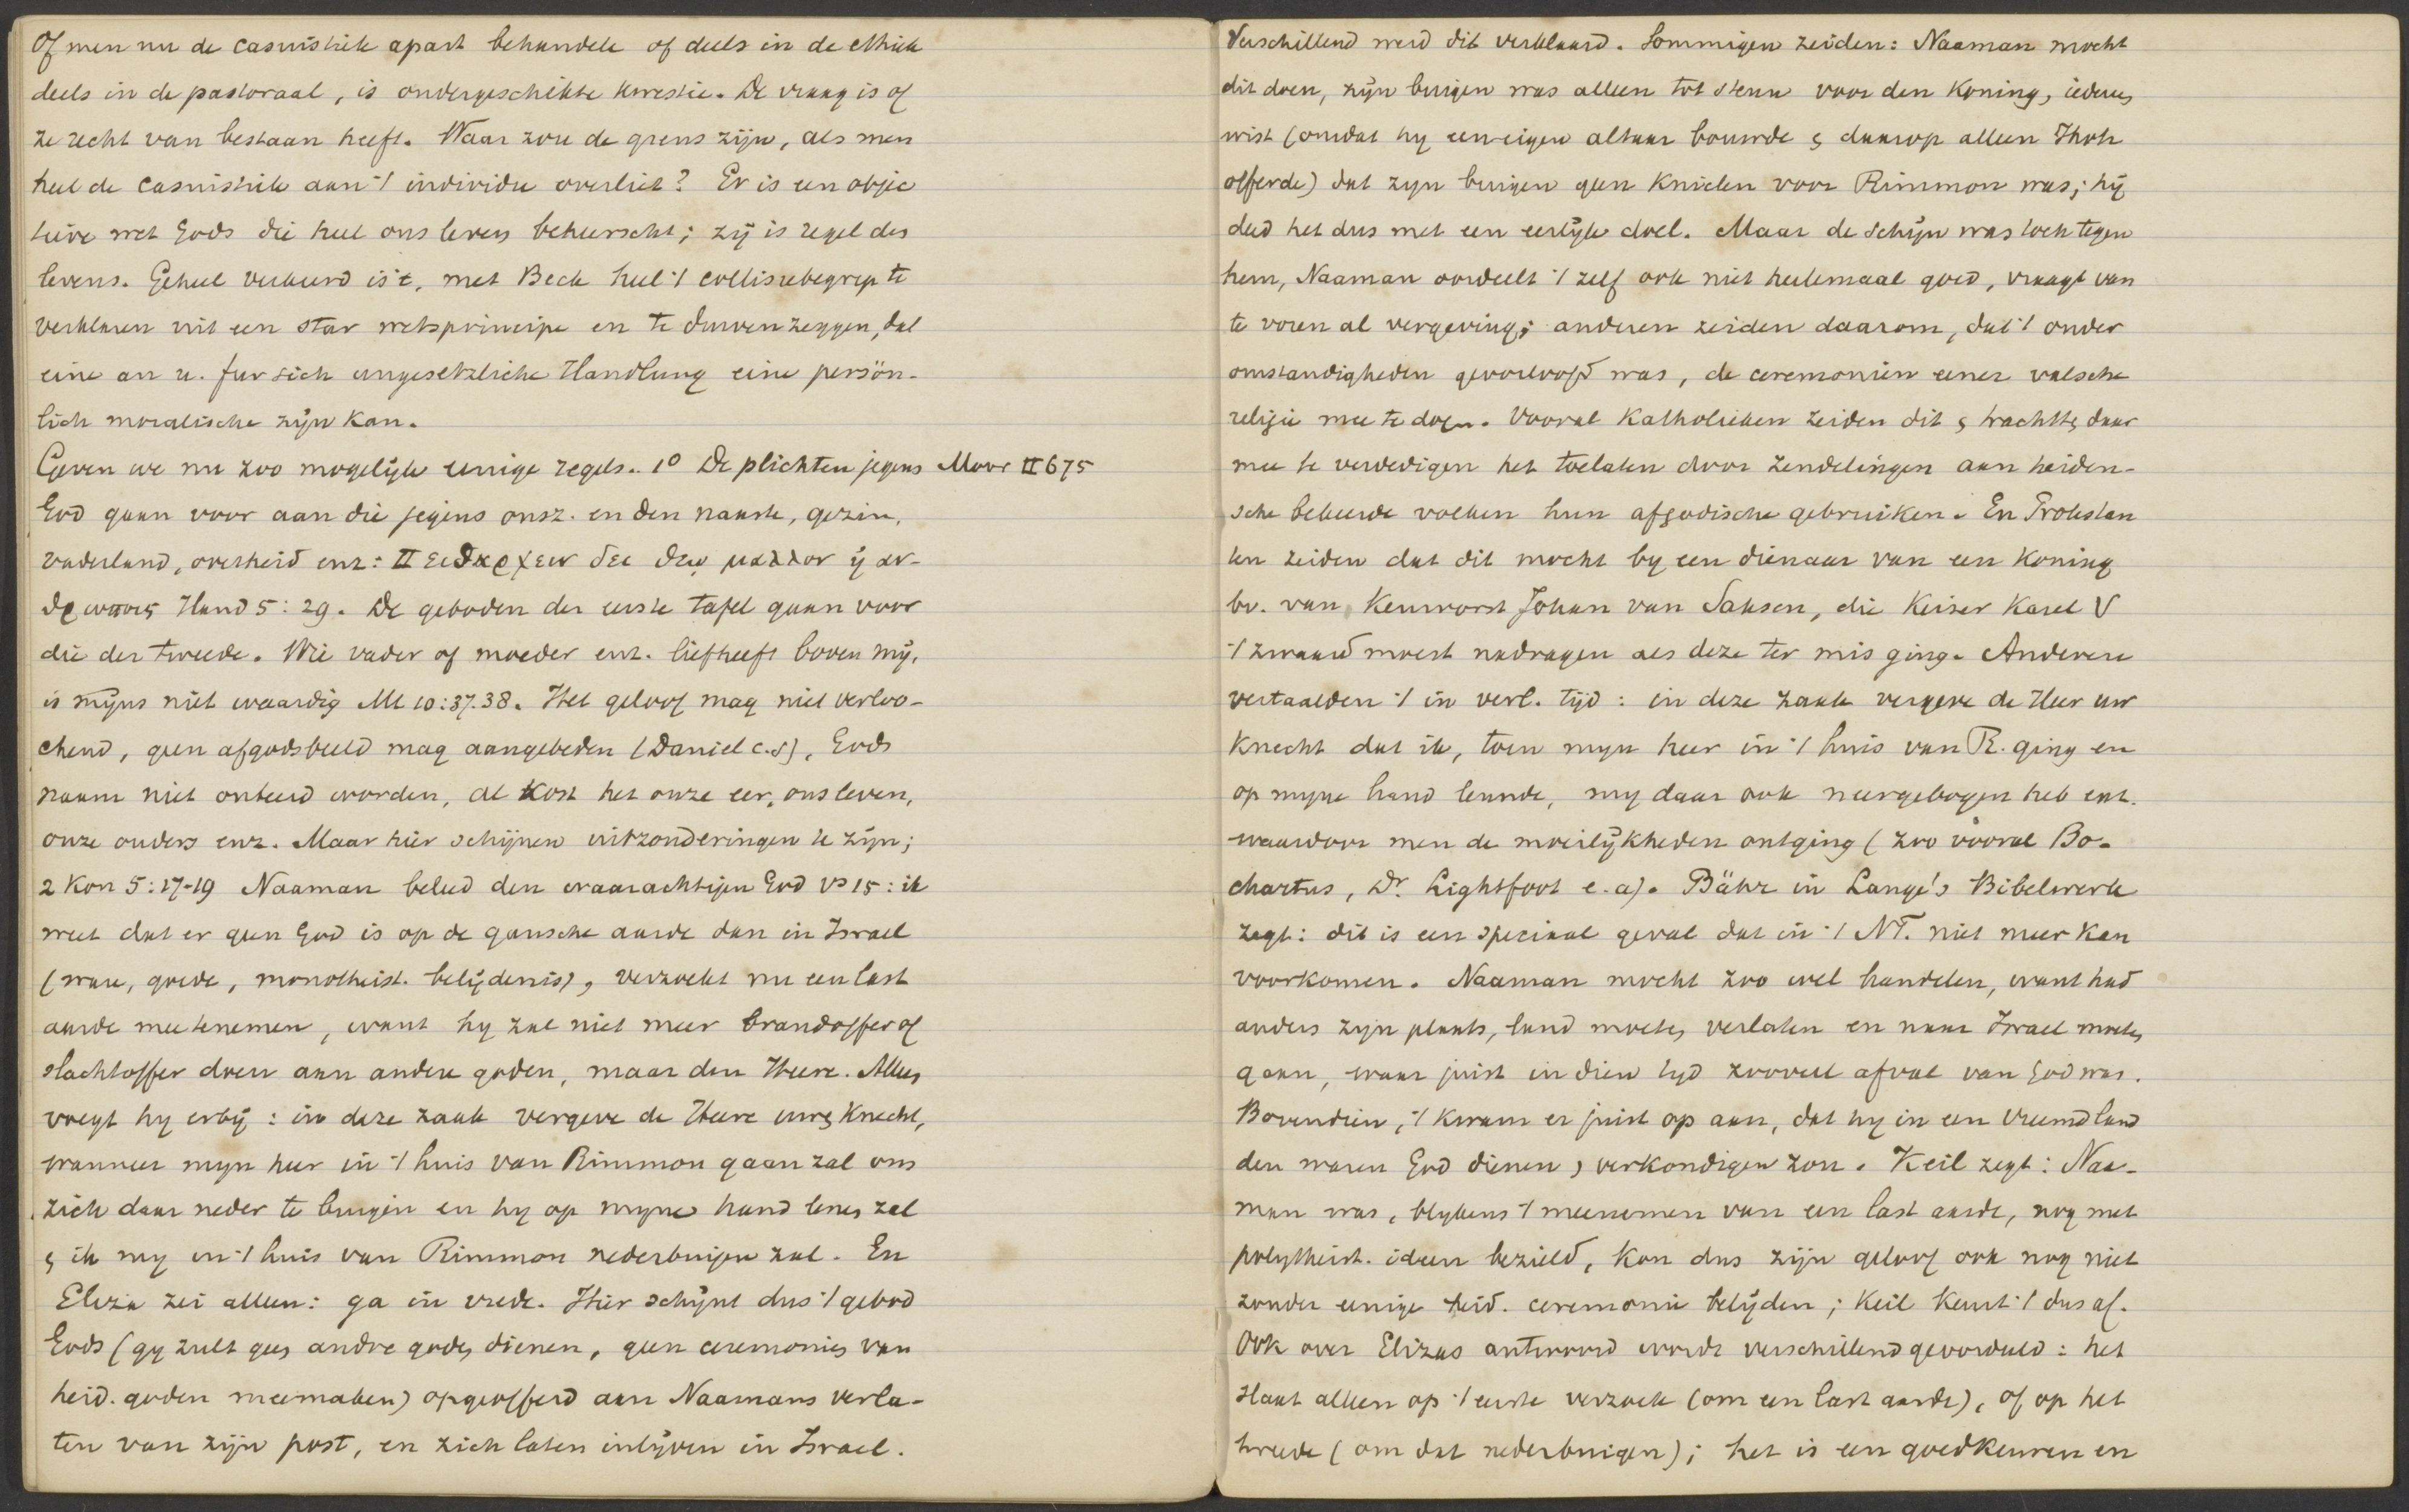 Of men nu de casuistiek apart behandele of deels in de ethiek
deels in de pastoraal, is ondergeschikte kwestie. De vraag is of
ze recht van bestaan heeft. Waar zou de grens zijn, als men
heel de casuistiek aan 't individu overliet? Er is een objec
tieve wet Gods die heel ons leven beheerscht; zij is regel des
levens. Geheel verkeerd is 't, met Beck heel 't collisiebegrip te
verklaren uit een star wetsprincipe en te durven zeggen, dat
eine an u. fur sich ungesetzliche Handlung eine persön-
lich moralische zijn kan.
Geven we nu zoo mogelijk eenige regels. 1° De plichten jegens Moor II 675
God gaan voor aan die jegens onsz. en den naaste, gezin,
vaderland, overheid enz: Πειθαρχειν δει θεῳ μαλλον ἢ αν-
θρωποις Hand 5:29. De geboden der eerste tafel gaan voor
die der tweede. Wie vader of moeder enz. liefheeft boven mij,
is mijns niet waardig Mt 10:37.38. Het geloof mag niet verloo-
chend, geen afgodsbeeld mag aangebeden (Daniel c.s), Gods
naam niet onteerd worden, al kost het onze eer, ons leven,
onze ouders enz. Maar hier schijnen uitzonderingen te zijn;
2 Kon 5:17-19 Naaman beleed den waarachtigen God vs 15: ik
weet dat er geen God is op de gansche aarde dan in Israel
(ware, goede, monotheist. belijdenis), verzoekt nu een last
aarde mee te nemen, want hy zal niet meer brandoffer of
slachtoffer doen aan andere goden, maar den Heere. Alleen
voegt hy erbij: in deze zaak vergeve de Heere uwen knecht,
wanneer myn heer in 't huis van Rimmon gaan zal om
zich daar neder te buigen en hy op myne hand lenen zal
en ik my in 't huis van Rimmon nederbuigen zal. En
Eliza zei alleen: ga in vrede. Hier schijnt dus 't gebod
Gods (gy zult geen andre goden dienen, geen ceremonies van
heid. goden meemaken) opgeofferd aan Naamans verla-
ten van zijn post, en zich laten inlijven in Israel.
Verschillend werd dit verklaard. Sommigen zeiden: Naaman mocht
dit doen, zijn buigen was alleen tot steun voor den koning, iedereen
wist (omdat hy een eigen altaar bouwde en daarop alleen Jhvh
offerde) dat zyn buigen geen knielen voor Rimmon was; hij
deed het dus met een eerlijk doel. Maar de schijn was toch tegen
hem, Naaman oordeelt 't zelf ook niet heelemaal goed, vraagt van
te voren al vergeving; anderen zeiden daarom, dat 't onder
omstandigheden geoorloofd was, de ceremoniën eener valsche
religie mee te doen. Vooral Katholieken zeiden dit en trachtten daar
mee te verdedigen het toelaten door zendelingen aan heiden-
sche bekeerde volken hun afgodische gebruiken. En Protestan
ten zeiden dat dit mocht by een dienaar van een koning
bv. van Keurvorst Johan van Saksen, die Keizer Karel V
't zwaard moest nadragen als deze ter mis ging. Anderen
vertaalden 't in verl. tijd: in deze zaak vergeve de Heer uw
knecht dat ik, toen myn heer in 't huis van R. ging en
op myne hand leunde, my daar ook neergebogen heb enz.
waardoor men de moeilijkheden ontging (zoo vooral Bo-
chartus, Dr. Lightfoot e.a). Bähr in Lange's Bibelwerk
zegt: dit is een speciaal geval dat in 't NT. niet meer kan
voorkomen. Naaman mocht zoo wel handelen, want had
anders zijn plaats, land moeten verlaten en naar Israel moeten
gaan, waar juist in dien tyd zooveel afval van God was.
Bovendien, 't kwam er juist op aan, dat hy in een vreemd land
den waren God dienen, verkondigen zou. Keil zegt: Naa-
man was, blykens 't meenemen van een last aarde, nog met
polytheist. ideen bezield, kon dus zijn geloof ook nog niet
zonder eenige heid. ceremonie belijden; Keil keurt 't dus af.
Ook over Elizas antwoord wordt verschillend geoordeeld: het
slaat alleen op 't eerste verzoek (om een last aarde), of op het
tweede (om dat nederbuigen); het is een goedkeuren en